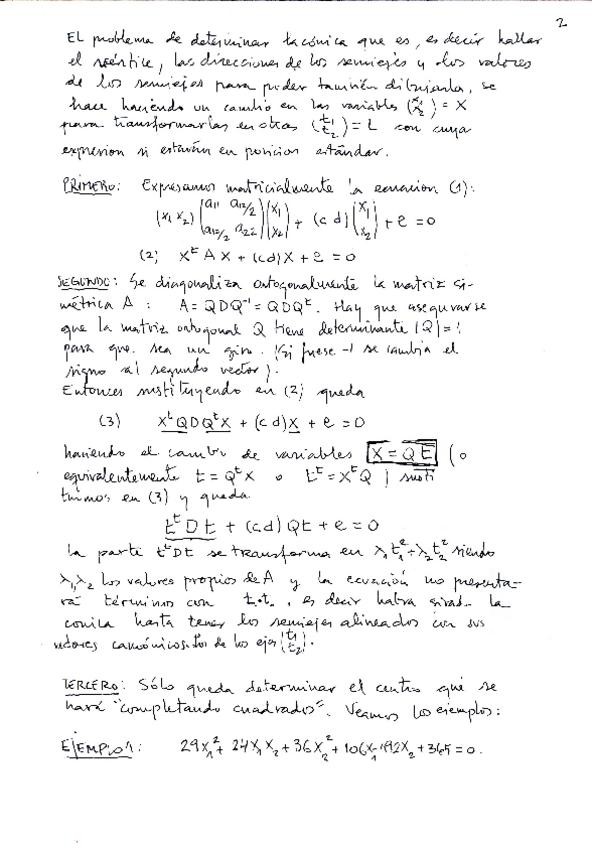 2
EL problema de determinar la cónica que es, es decir hallar
el vértice, las direcciones de los semiejes y los valores
de los semiejes para poder también dibujarla, se
hace haciendo un cambio en las variables (x₁ x₂) = X
para transformarlas en otras (t₁ t₂) = t con cuya
expresion si estarán en posicion estándar.
PRIMERO: Expresamos matricialmente la ecuacion (1):
(x₁ x₂) (a₁₁ a₁₂/2 a₁₂/2 a₂₂) (x₁ x₂) + (c d) (x₁ x₂) + e = 0
(2) XᵗAX + (c d)X + e = 0
SEGUNDO: Se diagonaliza ortogonalmente la matriz si-
métrica A : A = QDQ⁻¹ = QDQᵗ. Hay que asegurarse
que la matriz ortogonal Q tiene determinante |Q| = 1
para que sea un giro. (Si fuese -1 se cambia el
signo al segundo vector).
Entonces sustituyendo en (2) queda
(3) XᵗQDQᵗX + (c d)X + e = 0
haciendo el cambio de variables X = Qt (o
equivalentemente t = QᵗX o tᵗ = XᵗQ) susti
tuimos en (3) y queda
tᵗDt + (c d)Qt + e = 0
la parte tᵗDt se transforma en λ₁t₁² + λ₂t₂² siendo
λ₁,λ₂ los valores propios de A y la ecuación no presenta-
rá términos con t₁t₂, es decir habra girado la
conica hasta tener los semiejes alineados con sus
vectores canónicos los de los ejes (t₁ t₂).
TERCERO: Sólo queda determinar el centro que se
hará "completando cuadrados". Veamos los ejemplos:
EJEMPLO 1: 29x₁² + 24x₁x₂ + 36x₂² + 106x₁ - 192x₂ + 365 = 0.